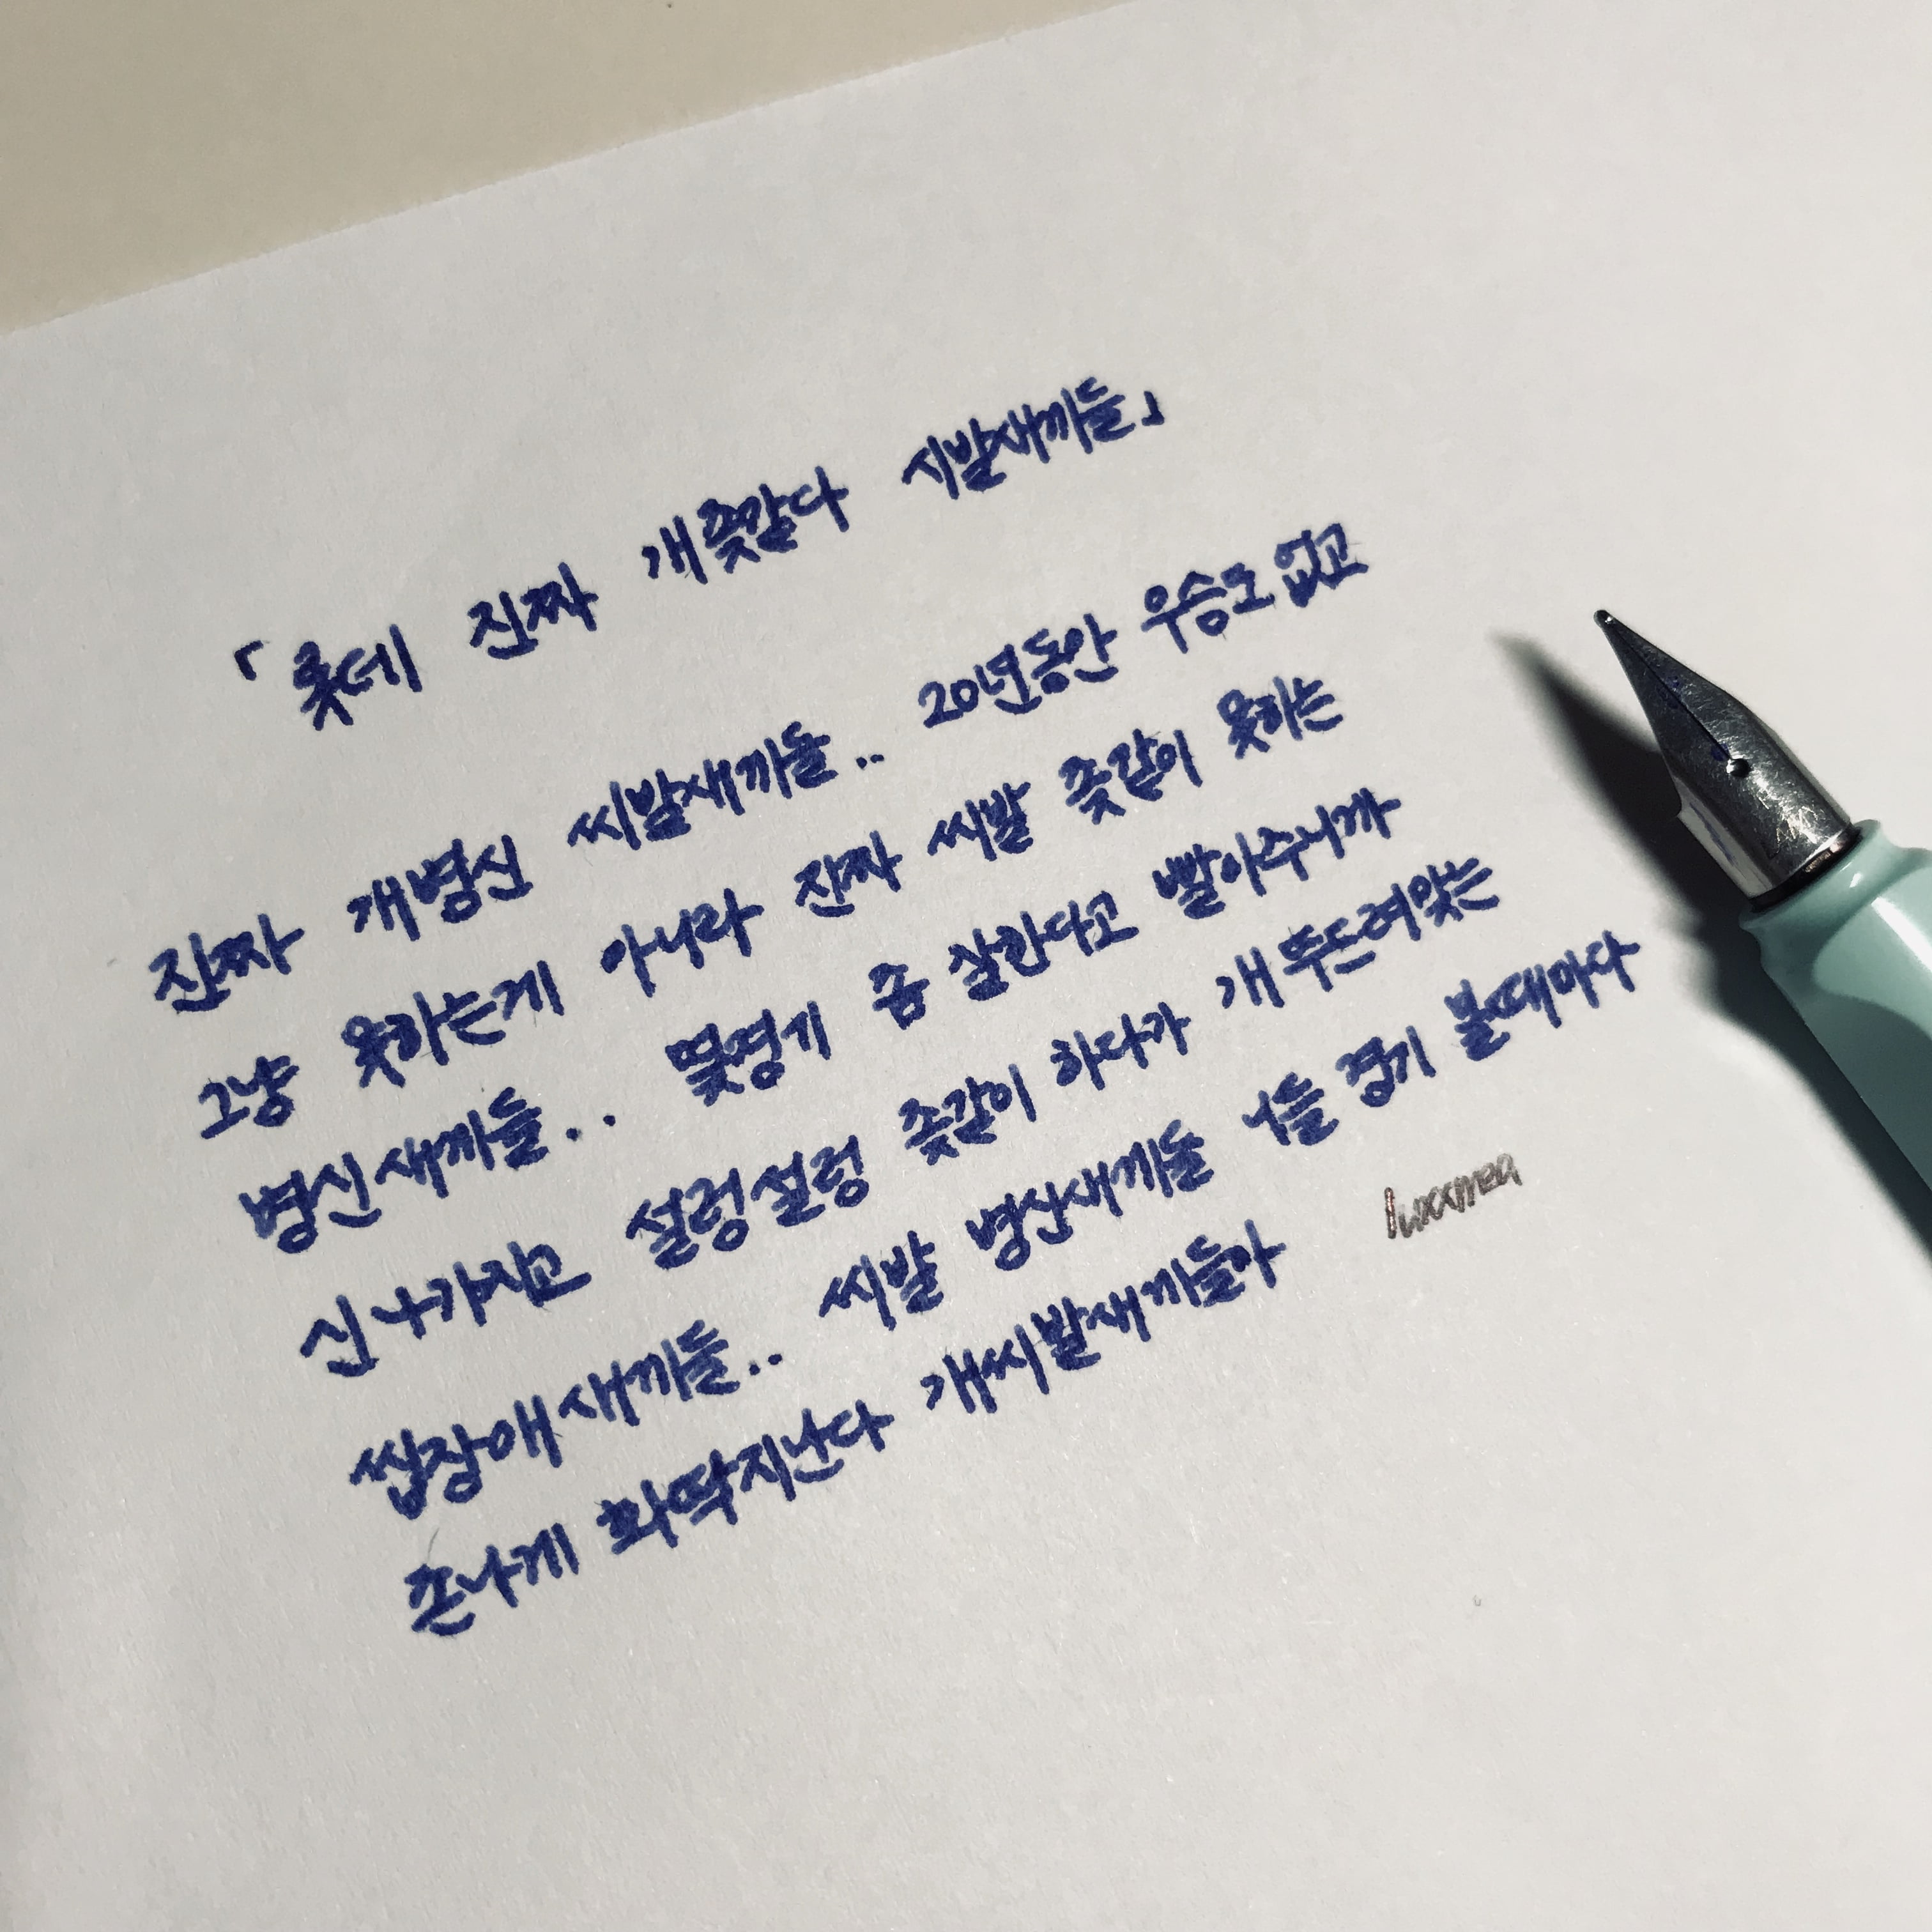 「롯데 진짜 개좆같다 시발새끼들」
진짜 개병신 씨발새끼들.. 20년동안 우승도 없고
그냥 못하는게 아니라 진짜 씨발 좆같이 못하는
병신새끼들.. 몇경기 좀 잘한다고 빨아주니까
신나가지고 설렁설렁 좆같이 하다가 개뚜드려맞는
씹장애새끼들.. 씨발 병신새끼들 너들 경기 볼때마다
존나게 화딱지난다 개씨발새끼들아
luxxmea